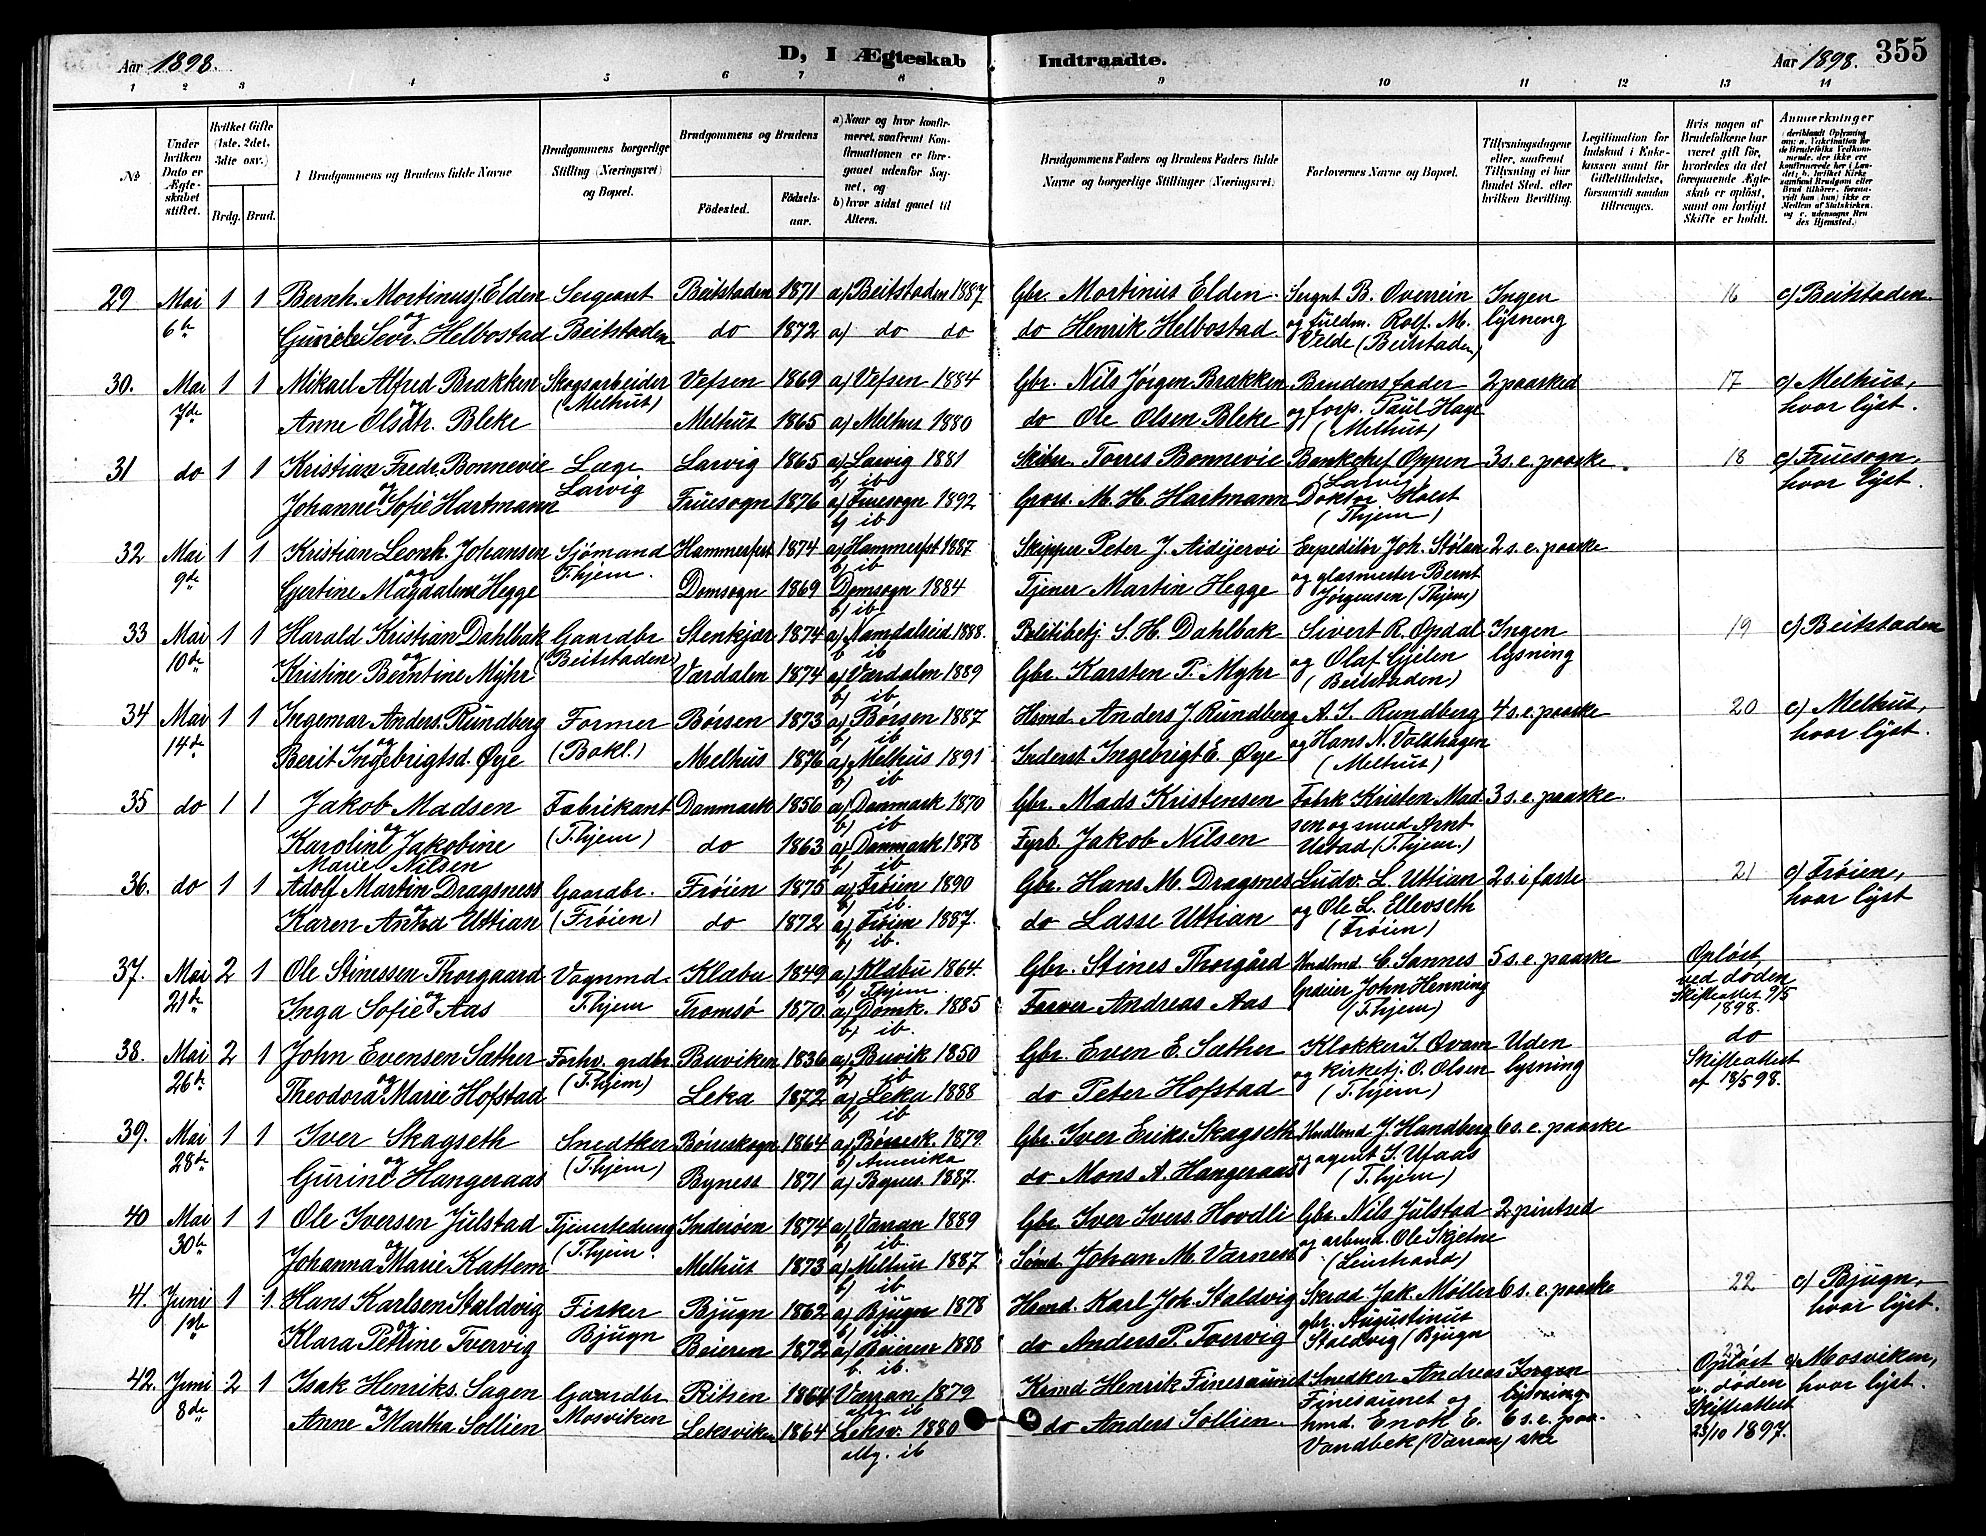 Aar 1898. D, I Ægteskab Indtraadte. Aar 1898. 355
1 2 3 4 5 6 7 8 9 10 11 12 13 14
No
Under hvilken Dato er Ægteskabet stiftet.
Hvilket Gifte (1ste, 2det, 3die osv.)
Brdg. Brud.
Brudgommens og Brudens fulde Navne
Brudgommens borgerlige Stilling (Næringsvei) og Bopæl.
Brudgommens og Brudens
Fødested. Fødselsaar.
a) Naar og hvor konfirmeret, saafremt Konfirmationen er foregaaet udenfor Sognet, og
b) hvor sidst gaaet til Alters.
Brudgommens Faders og Brudens Faders fulde Navne og borgerlige Stillinger (Næringsvei).
Forlovernes Navne og Bopæl.
Tillysningsdagene eller, saafremt Tillysning ei har fundet Sted, efter hvilken Bevilling.
Legitimation for Indskud i Enkekassen samt for Giftetilladelse, forsaavidt saadan tiltrænges.
Hvis nogen af Brudefolkene har været gift før, hvorledes da det foregaaende Ægteskab er opløst, samt om lovligt Skifte er holdt.
Anmerkninger
29 Mai 1 1 Bernh. Martinus J. Elden Sergeant Beitstaden 1871 a) Beitstaden 1887 Gbr. Martinus Elden Sergnt B. Overrein Ingen 16 c) Beitstaden
6te og Sevr. Helbostad Beitstaden do 1872 a) do do do Henrik Helbostad og fuldm. Rolf. M. Velde (Beitstaden) lysning
30. Mai 1 1 Mikael Alfred Brækken Skogsarbeider Vefsen 1869 a) Vefsen 1884 Gbr. Nils Jørgen Brækken Brudens fader 2 paasked 17 c) Melhus,
7de og Anne Olsdtr. Bleke (Melhus) Melhus 1865 a) Melhus 1880 do Ole Olsen Bleke og forp. Paul Hage (Melhus) hvor lyst.
31 do 1 1 Kristian Fredr. Bonnevie Læge Larvig 1865 a) Larvig 1881 b) ib Torres Bonnevie Bankchef Oppen Larvig 3 s. e. paaske. 18 c) Fruesogn,
og Johanne Sofie Hartmann Larvig Fruesogn 1876 a) Fruesogn 1892 b) ib Gros. M. H. Hartmann Doktor Holst (Thjem) hvor lyst.
32 Mai 1 1 Kristian Leonh. Johansen Sjömand Hammerfest 1874 a) Hammerfst 1887 b) ib Skipper Peter J. Aidijervi Expeditör Joh. Stølan 2 s. e. paaske
9de og Gjertine Magdalene Hegge T.hjem. Domsogn 1869 Domsogn 1884 b) ib Tjener Martin Hegge og glasmester Bernt Jørgensen (Thjem)
33 Mai 1 1 Harald Kristian Dahlbak Gaardbr Stenkjær 1874 a) Namdalseid 1888. b ib Politibetj. S. H. Dahlbak Sivert R. Opdal Ingen 19 c) Beitstaden
10de og Kristine Berntine Myhr (Beitstaden) Værdalen 1874 a) Værdalen 1889 b) ib Gbr. Karsten P. Myhr og Olaf Gjelen (Beitstaden) lysning
34 Mai 1 1 Ingemar Anders. Rundberg Former Børsen 1873 a) Børsen 1887 b) ib Hsmd. Anders J. Rundberg A. J. Rundberg 4 s. e. paaske 20 c) Melhus,
14de og Berit Ingebrigtsd. Øye (Bakl.) Melhus 1876 a) Melhus 1891 b) ib Inderst Ingebrigt E. Øye og Hans N. Voldhagen (Melhus) hvor lyst.
35 do 1 1 Jakob Madsen Fabrikant Danmark 1856 a) Danmark 1870 b) ib Gbr. Mads Kristensen Fabrk Kristen Mad 3 s. e. paaske.
og Karoline Jakobine Marie Nilsen (T.hjem) do 1863 a) Danmark 1878 b) ib Fyrb Jakob Nilsen sen og smed Arnt Ustad (T.hjem.)
36. do 1 1 Adolf Martin Dragsness Gaardbr. Frøien 1875 a) Frøien 1890 b) ib. Gbr. Hans M. Dragsnes Ludv. L. Uttian 2 s. i faste 21 c) Frøien,
og Karen Anna Uttian (Frøien) do 1872 a) Frøien 1887. b) ib. do Lasse Uttian og Ole L. Ellevseth (Frøien) hvor lyst
37. Mai 2 1 Ole Stinessen Thorgaard Vognmd. Klæbu 1849 a) Klæbu 1864. b) Thjem. Gbr. Stines Thorgård Hndlmd. C. Sannes 5 s. e. paaske Opløst
21de og Inga Sofie Aas T.hjem Tromsø 1870. a) Domk. 1885 b) ib. Farver Andreas Aas John Henning (T.hjem) ved døden Skifteattst 9/5 1898.
38. Mai 2 1 John Evensen Sæther Forhv. grdbr Buviken 1836 a) Buvik 1850 b) ib Gbr. Even E. Sæther Klokker I. Øvam Uden do
26de og Theodora Marie Hofstad (T.hjem) Leka 1872 a) Leka 1888 b) ib do Peter Hofstad og kirketj. O. Olsen (T.hjem) lysning Skifteattest af 18/5 98.
39. Mai 1 1 Iver Skagseth Snedker Børseskogn 1864 a) Børsesk. 1879. b) Amerika Gbr. Iver Eriks. Skagseth Hndlmd J. Handberg 6 s. e. paaske
28de og Gurine Hangeraas (T.hjem) Byness 1871 a) Bynes. 1887. do Mons A. Hangeraas og agent S. Utaas (T.hjem)
40 Mai 1 1 Ole Iversen Julstad Inderøen 1874 a) Værran 1889 b) ib. Gbr. Iver Ivers. Hovdli Gbr. Nils Julstad 2 pintsed
30te og Johanna Marie Kattem (T.hjem. Melhus 1873 a) Melhus 1887 b) ib Sømd Johan M. Værness og arbmd. Ole Skjetne (Leinstrand)
41. Juni 1 1. Hans Karlsen Staldvig Fisker Bjugn 1862 a) Bjugn 1878 b) ib Hsmd. Karl Joh. Staldvig Skrad. Jak. Møller 6 s. e. paaske 22 c) Bjugn,
1ste og Klara Petrine Tvervig Bjugn Beieren 1872 a) Beieren 1888 b. ib. do Anders P. Tvervig gbr. Augustinus Staldvig (Bjugn hvor lyst.
42. Juni 2 1 Isak Henriks. Sagen Gaardbr Ritsen 1864 Værran 1879 altg. ib Henrik Finesaunet Snedker Andreas Ingen 23 Opløst c) Mosviken,
8de og Anne Martha Sollien Mosviken Leksviken 1864 Leksv. 1880 altg. ib do Anders Sollien. Finesaunet og hmd. Enok E. Vandbek (Værran) lysning 6 s. e. paaske v. døden Skifteattest 23/10 1897. hvor lyst.